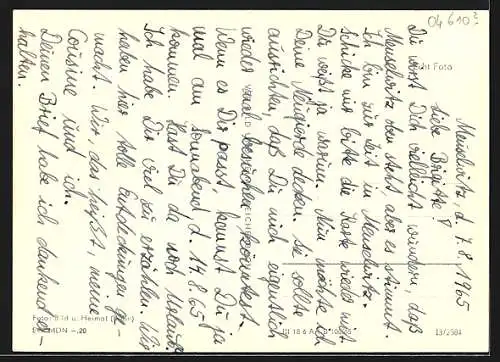 Meuselwitz, d. 7.8.1965
Liebe Brigitte!
Du wirst Dich vielleicht wundern, daß
Meuselwitz oben steht aber es stimmt.
Ich bin zur Zeit in Meuselwitz.
Schicke mir bitte die Karte wieder mit
Du weißt ja warum. Nun möchte ich
Deine Neugierde decken. Sie sollte
ausrichten, daß Du mich eigentlich
wieder mal besuchen könntest.
Wenn es Dir passt, kannst Du ja
mal am Sonnabend d. 14.8.65
kommen. Hast Du da noch Urlaub.
Ich habe Dir viel zu erzählen. Wir
haben hier tolle Entdeckungen ge-
macht. Wir, das heißt, meine
Cousine und ich.
Deinen Brief habe ich dankend er-
halten.
04610
Foto
Foto: Bild u. Heimat
MDN -,20